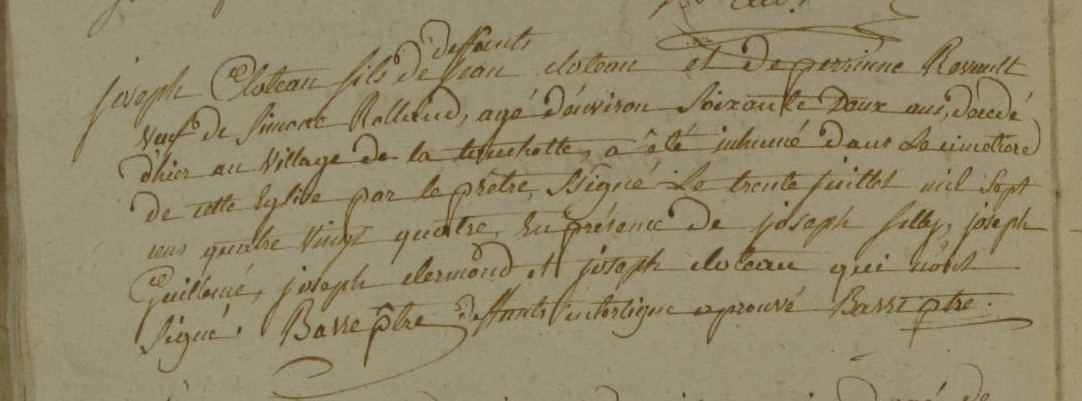 deffunts
joseph Cloteau fils de jean cloteau et de perrinne Renault
veuf de Simone Rolland, agé d'environ Soixante Doux ans, décédé
d'hier au Village de la touchette, a été inhumé dans Le cimetiere
de cette Eglise par le prêtre Ssigné Le trente juillet mil Sept
cens quatre Vingt quatre, En présence de joseph joseph
Guillemé, joseph clermond et joseph cloteau qui n'ont
Signé. Basse ptre deffunts interligne aprouvé Basse ptre.